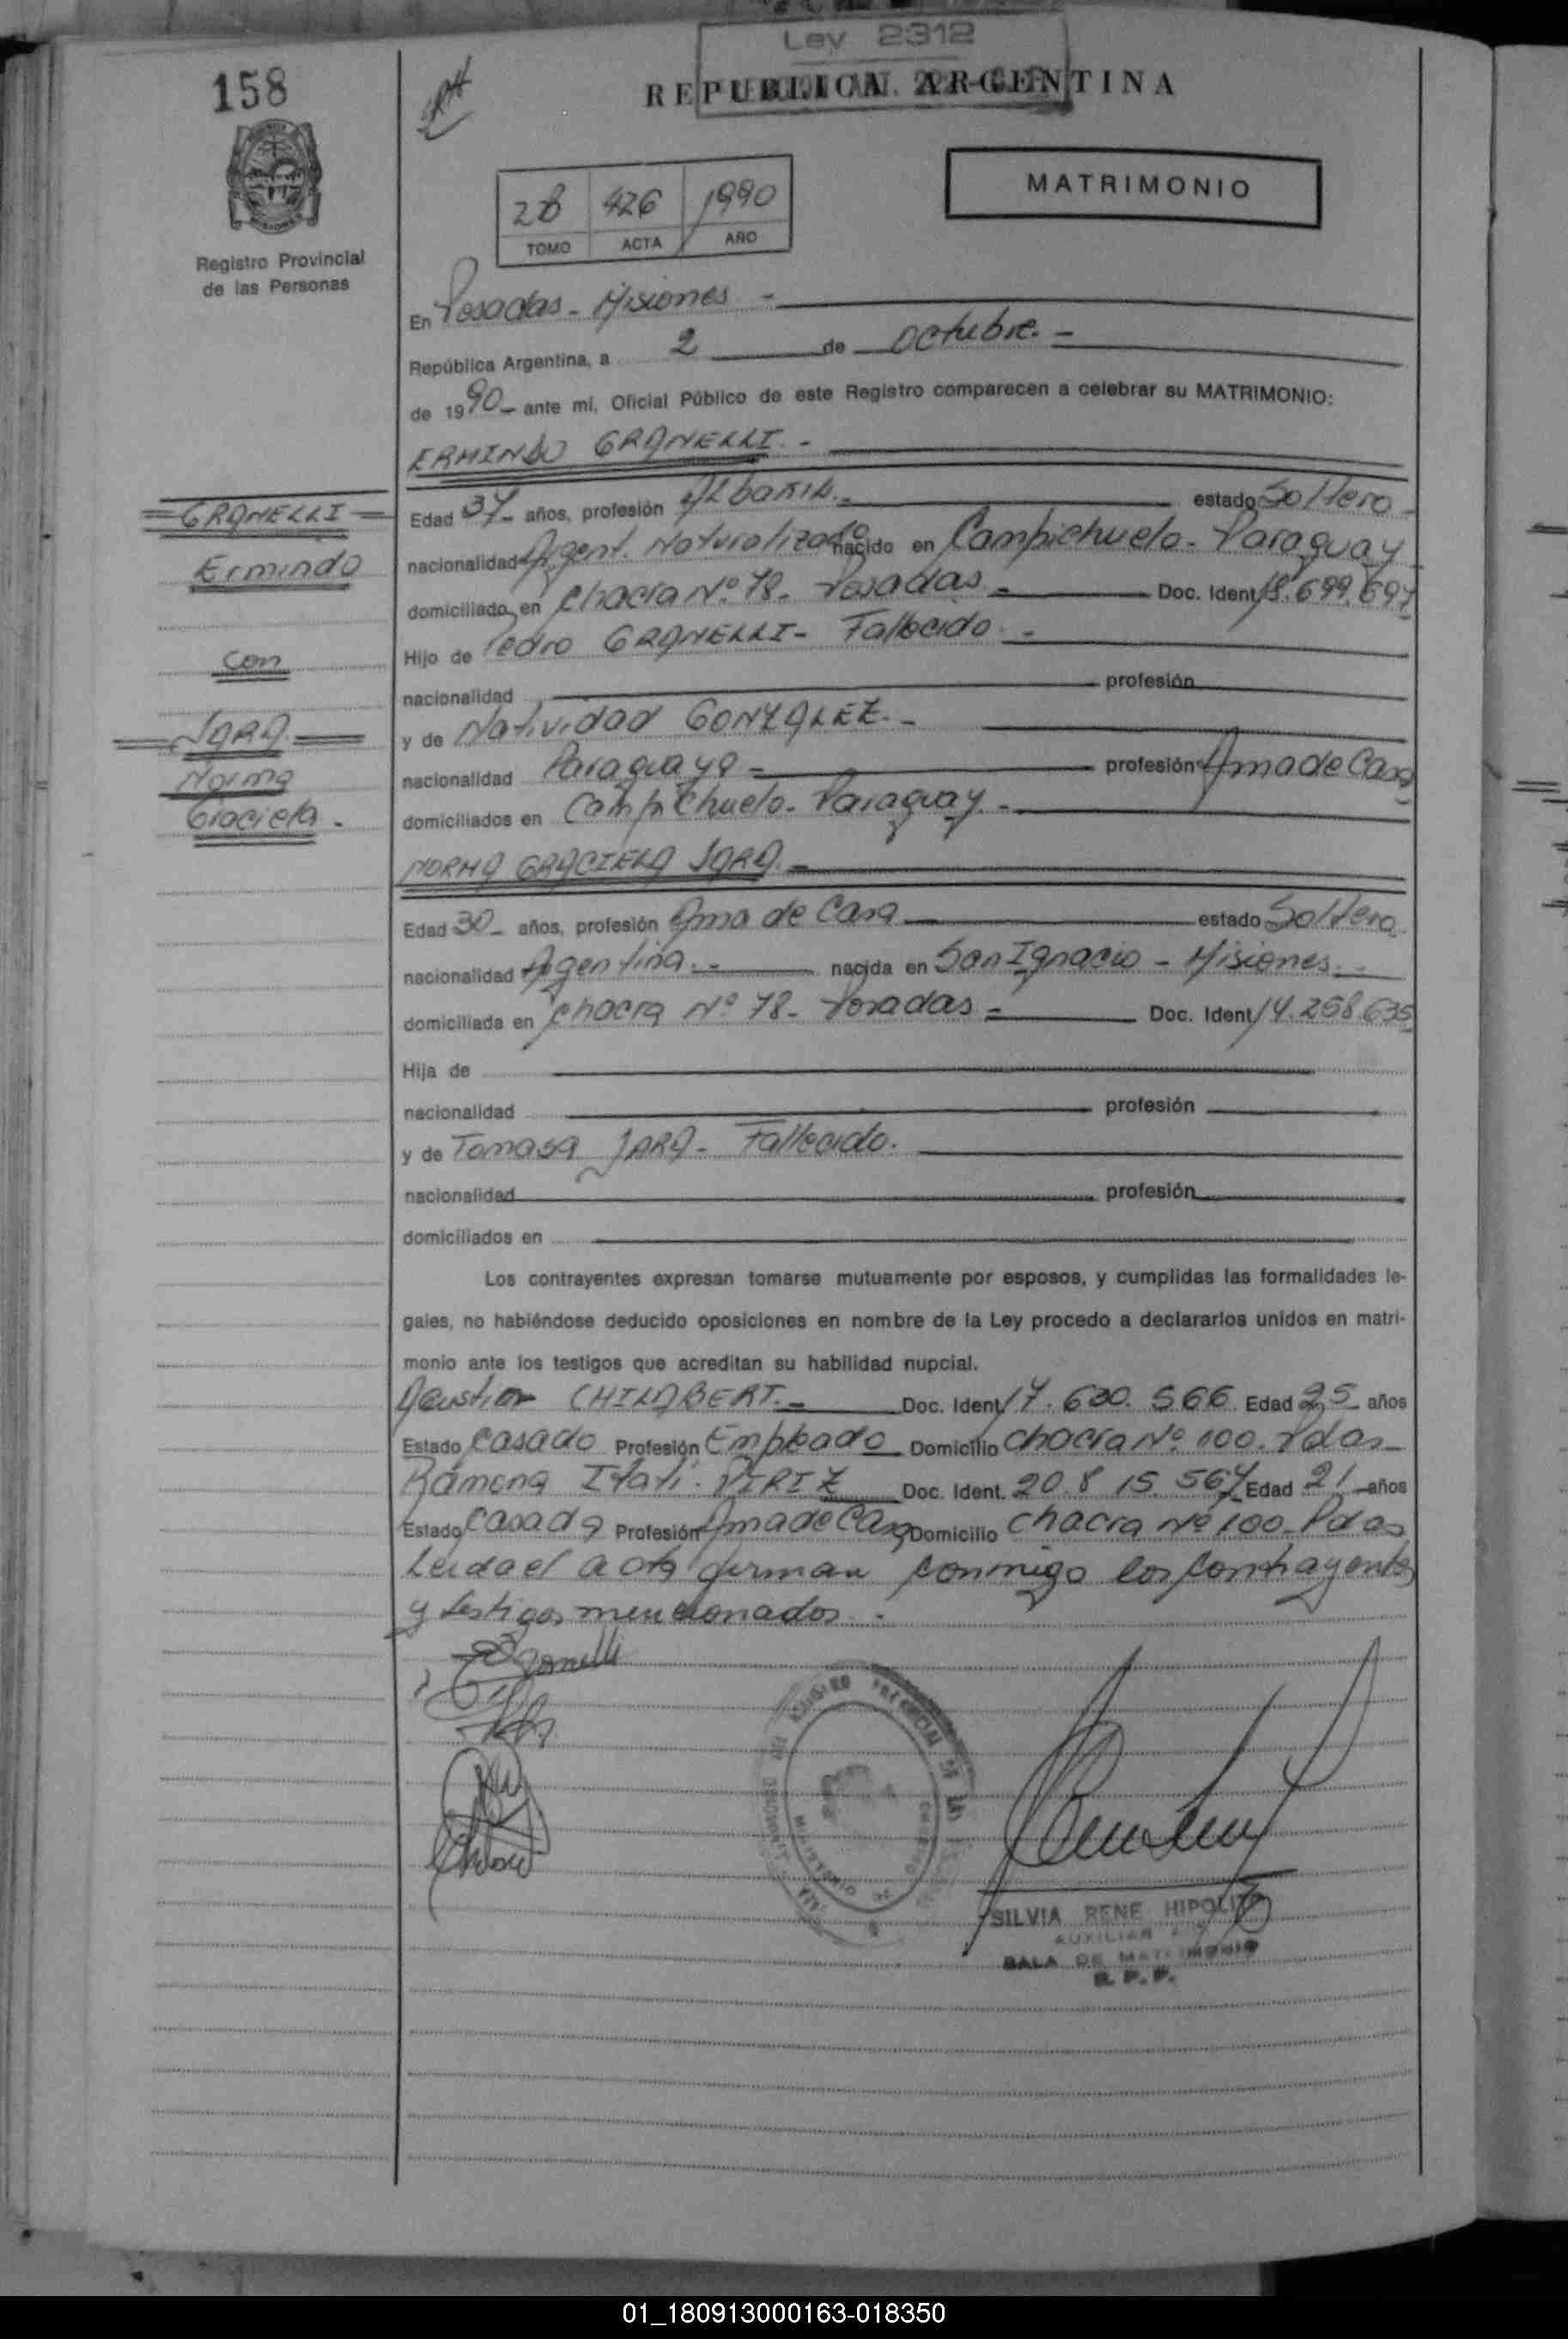 158
Ley 2312
REPUBLICA ARGENTINA
Registro Provincial
de las Personas
28 426 1990
TOMO ACTA AÑO
MATRIMONIO
En Posadas - Misiones -
República Argentina, a 2 de octubre. -
de 1990 - ante mí, Oficial Público de este Registro comparecen a celebrar su MATRIMONIO:
ERMINDO GRANELLI. -
GRANELLI
Ermindo
con
JARA
Norma
Graciela -
Edad 37 - años, profesión Albañil. - estado Soltero -
nacionalidad Argent. Naturalizado nacido en Campichuelo - Paraguay
domiciliado en Chacra Nº 78 - Posadas - Doc. Ident. 18.699.697
Hijo de Pedro GRANELLI - Fallecido. -
nacionalidad profesión
y de Natividad GONZALEZ. -
nacionalidad Paraguaya - profesión Ama de Casa
domiciliados en Campichuelo - Paraguay. -
NORMA GRACIELA JARA. -
Edad 30 - años, profesión Ama de Casa estado Soltera
nacionalidad Argentina. - nacida en San Ignacio - Misiones. -
domiciliada en Chacra Nº 78 - Posadas - Doc. Ident. 14.258.635
Hija de
nacionalidad profesión
y de Tomasa JARA - Fallecida.
nacionalidad profesión
domiciliados en
Los contrayentes expresan tomarse mutuamente por esposos, y cumplidas las formalidades le-
gales, no habiéndose deducido oposiciones en nombre de la Ley procedo a declararlos unidos en matri-
monio ante los testigos que acreditan su habilidad nupcial.
Agustin CHILABERT. - Doc. Ident. 17.630.566 Edad 25 años
Estado Casado Profesión Empleado Domicilio Chacra Nº 100. Pdas -
Ramona Itatí PIRIZ Doc. Ident. 20.815.567 Edad 21 años
Estado Casada Profesión Ama de Casa Domicilio Chacra Nº 100 - Pdas
Leida el acta firman conmigo los contrayentes
y testigos mencionados.
SILVIA RENE HIPOLITO
AUXILIAR
SALA DE MATRIMONIO
R. P. P.
01_180913000163-018350